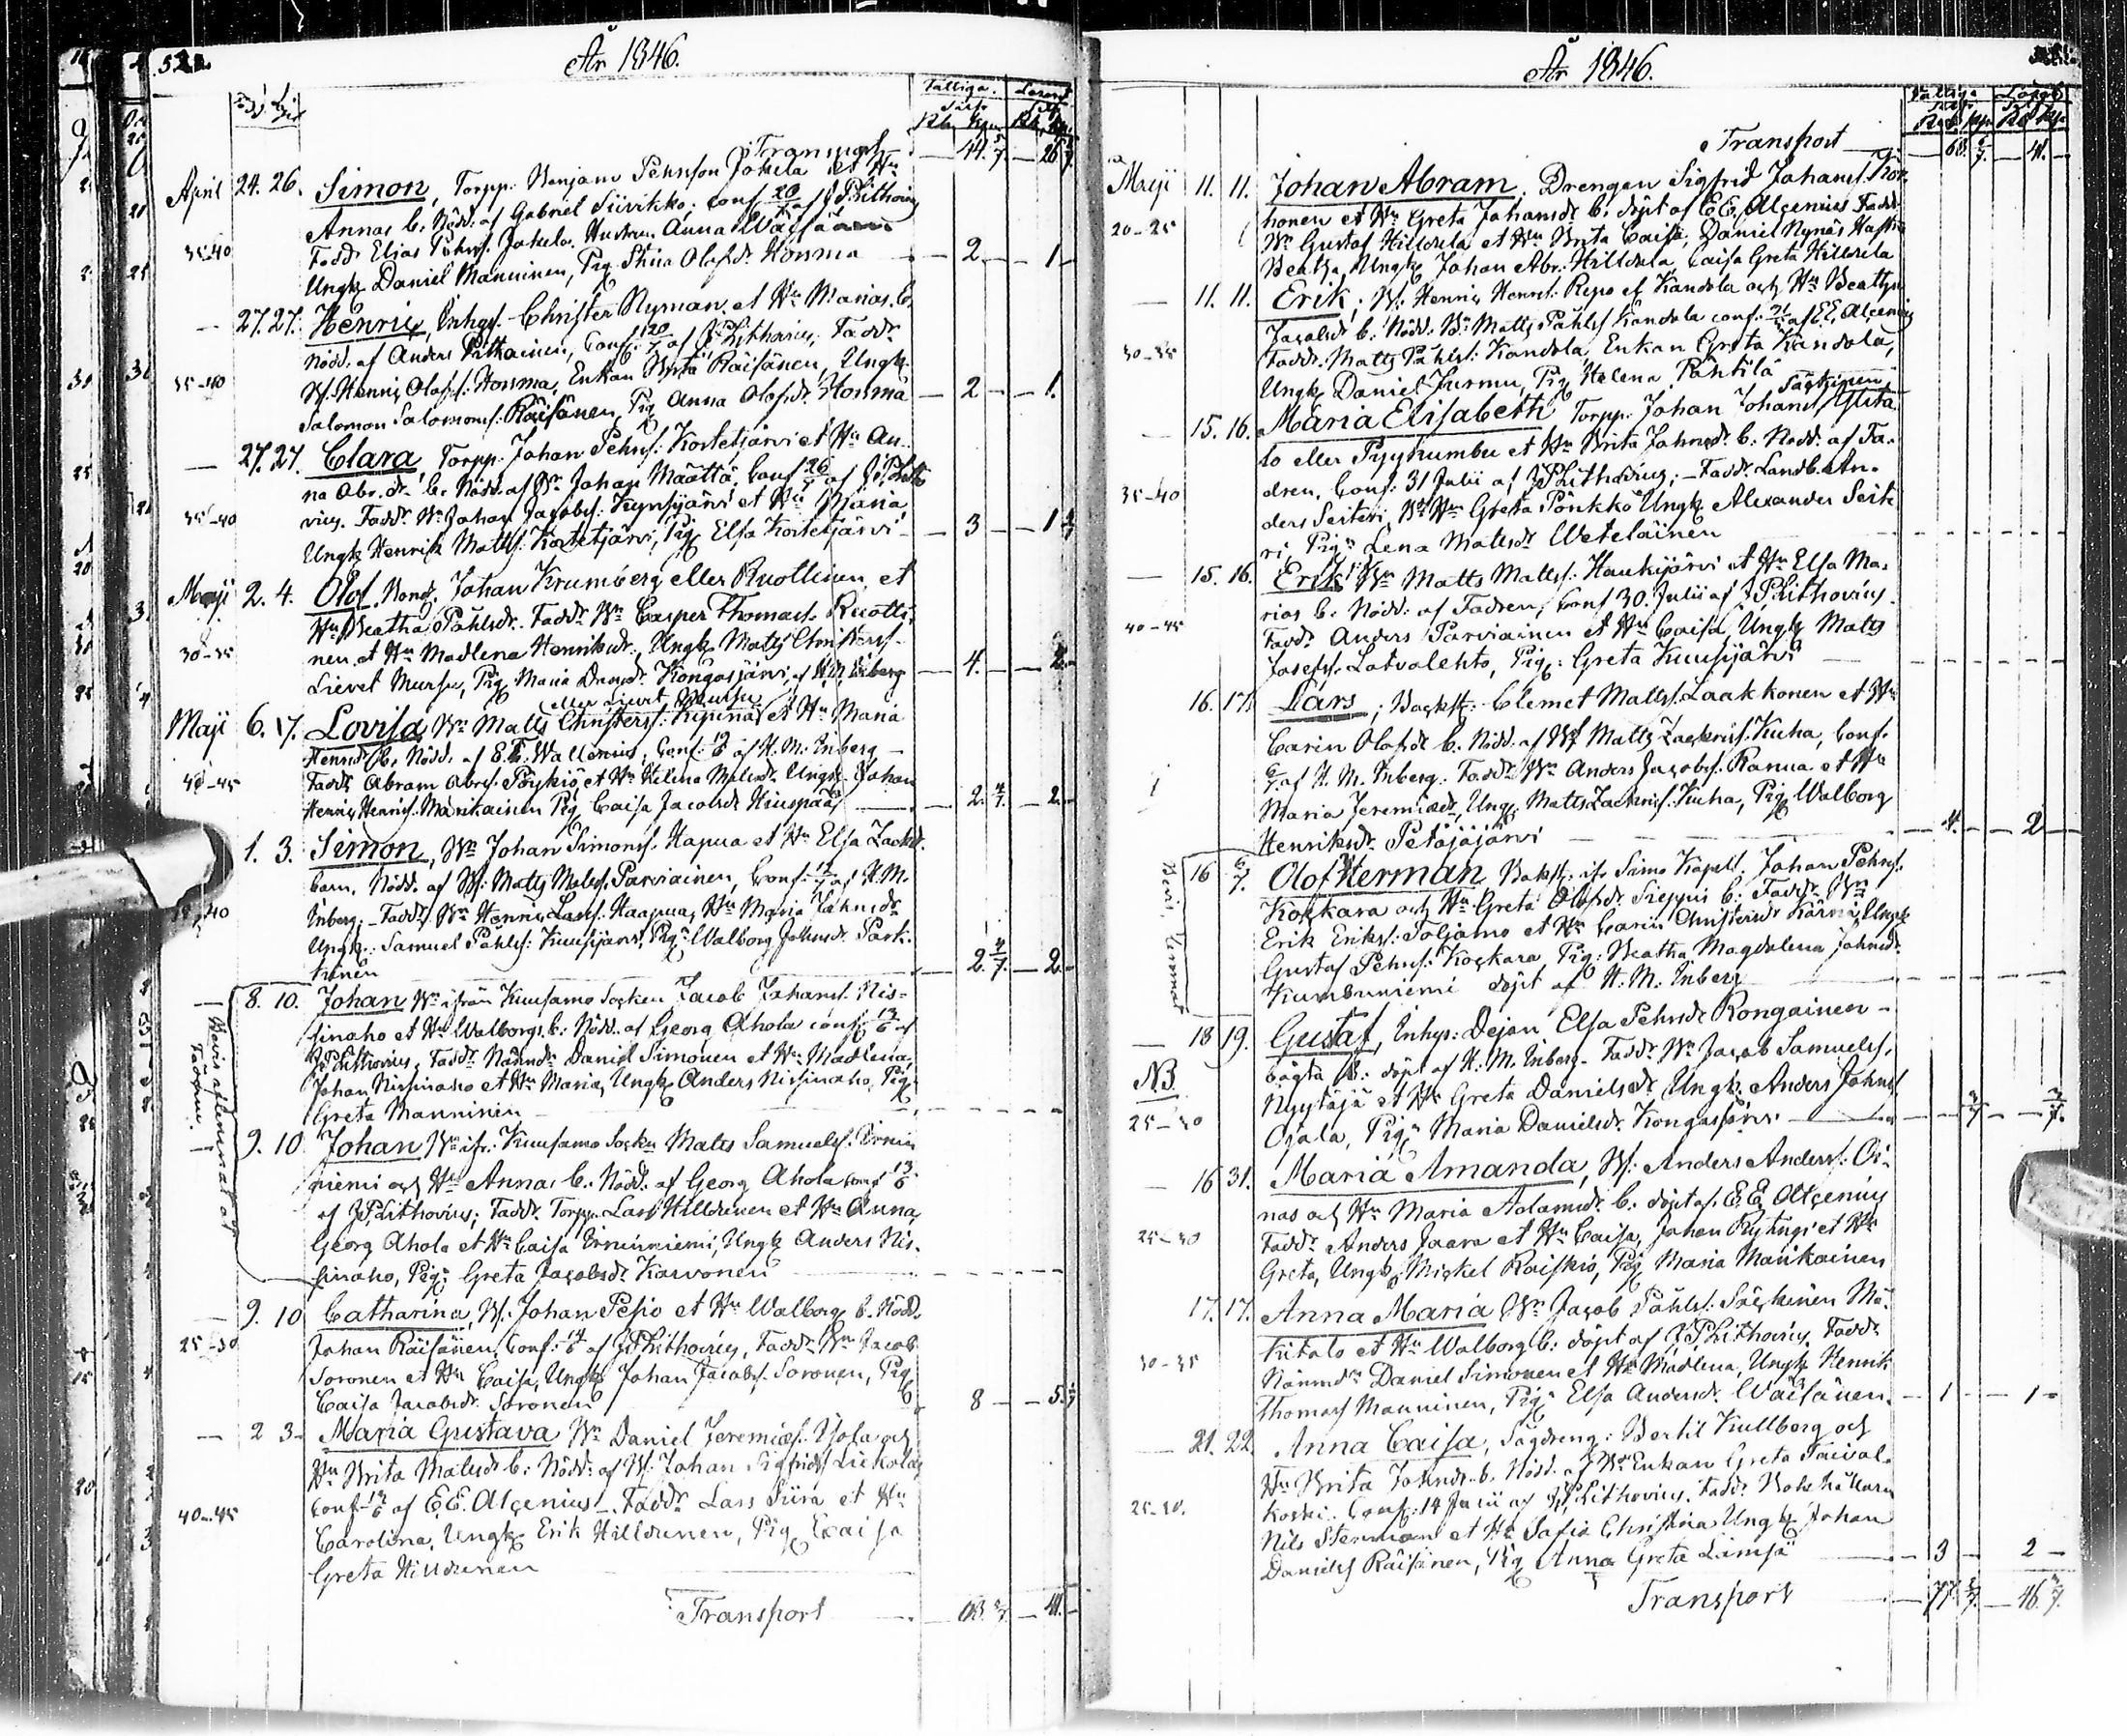 År 1846.
Fattiga. Lasarets
Silfr Silfr
Rbl. Kop. Rbl. Kop.
Transport — 44. 5/7 — 26 5/7
April 24. 26. Simon, Torpp: Benjam Pehrsson Jokela et Hu
Annas b. Nödd. af Gabriel Siirikko; conf af J P Lithovius
35-40 Fadd Elias Pehrs. Jokela. Hustrun Anna — 2 — 1
Ungk Daniel Manninen, Pig Olofsdr Hourma
— 27. 27. Henric, Inhys. Christer Nyman et Hu Marias b.
Nödd. af Anders Pitkainen, Conf: af J P Lithovius, Faddr
35-40 W. Henric Olofs: Hourma, Enkan Brita Räisänen, Ungk. — 2 — 1.
Salomon Salomons: Räisänen, Pig Anna Olofsdr Hourma
— 27. 27. Clara, Torpp. Johan Pehrs: Kortetjärvi et Hu An-
na Abr.dr b. Nödd. af Br Johan Määttä, Conf 26 af J P Litho
35-40 vius. Faddr. Bn Johan Jacobs: Kynsijärvi et Hu Maria — 3 — 1
Ungk Henrik Matts: Kortetjärvi, Pig Elsa Kortetjärvi
Maji 2. 4. Olof. Bond. Johan Krumberg eller Ruottinen et
Hu Beatha Påhlsdr. Faddr Bn Casper Thomas Ruotti-
30-35 nen et Hu Madlena Henriksdr. Ungk Matts Christers — 4. — 2
Lievet Mursu, Pig Maria Dansdr Kongasjärvi, af H. M. Inberg
eller Lievet Mursu
Maji 6. 7. Lovisa, Bn Matts Christers: Kipinä et Hu Maria
Henrsdr b. Nödd. af E. F. Wallenius, Conf: af H. M. Inberg
40-45 Faddr Abram Abrs. Pöykiö et Hu Helena Matsdr. Ungk Johan — 2. 4/7 — 2
Henric Henrics. Manikainen Pig Caisa Jacobsdr
1. 3. Simon, Bn Johan Simons. Hapua et Hu Elsa Zachrdr
barn. Nödd. af W. Matts Mats. Parviainen, Conf: af H. M.
35-40 Inberg. Faddr Bn Henric Lars. Haapua, Hu Maria Johnsdr
Ungk: Samuel Påhls: Kuusijärvi, Pig Walborg Johnsdr Park- — 2. 4/7 — 2
kinen
8. 10. Johan Bn ifrån Kuusamo Socken Jacob Johans. Nis-
sinaho et Hu Walborgs b: Nödd. af Georg Ahola conf 13/6 af
J P Lithovius, Faddr. Nämndn Daniel Simonen et Hu Madlena,
Johan Nissinaho et Hu Maria, Ungk Anders Nissinaho, Pig
Greta Manninen
Bevis aflemnat at
Fadren.
9. 10 Johan Bn ifr. Kuusamo Sockn Matts Samuels. Irnin
niemi och Hu Annas b. Nödd. af Georg Ahola conf 13/6
af J P Lithovius; Faddr. Torpp. Lars Hilldunen et Hu Anna,
Georg Ahola et Hu Caisa Irninniemi, Ungk Anders Nis-
sinaho, Pig Greta Jacobsdr Karvonen
9. 10 Catharina, W. Johan Pesio et Hu Walborg b. Nödd.
25-30 Johan Räisänen, Conf: 14/6 af J P Lithovius, Faddr. Bn Jacob
Soronen et Hu Caisa, Ungk Johan Jacobs. Soronen, Pig
Caisa Jacobsdr. Soronen 8 — 5.
— 2 3 Maria Gustava Bn Daniel Jeremiæs. Ylola och
Hu Brita Matsdr b: Nödd: af W. Johan Sigfrids Liekola,
40-45 Conf 13/6 af E. E. Alcenius. Faddr Lars Siira et Hu
Carolina, Ungk Erik Hilldunen, Pig Caisa
Greta Hilldunen
Transport — 63. — 41.
År 1846.
Fattiga Lasarets
Transport — 63. — 41.
Maji 11. 11. Johan Abram, Drengen Sigfrid Johans. Kor-
20-25 honen et Hu Greta Johansdr b. döpt af E. E. Alcenius Fadd
Bn Gustaf Hilldela et Hu Brita Caisa, Daniel Nynäs Hustru
Beatha, Ungk Johan Abr: Hilldela, Caisa Greta Hilldela
— 11. 11. Erik, W. Henric Henrs: Repo et Kandola och Hu Beathas
Jacobsdr b. Nödd. Bn Matts Påhls Kandola conf: af E. E. Alcenius
30-35 Faddr. Matts Påhls: Kandola, Enkan Greta Kandola,
Ungk Daniel Jurmu, Pig Helena Pantila
Säckinen
— 15. 16. Maria Elisabeth Torpp. Johan Johans Ylita-
lo eller Pyykumbu et Hu Brita Johnsdr. b. Nodd. af Fa-
35-40 dren. Conf: 31 Julii af J P Lithovius; - Faddr. Landb. An-
ders Seiteri, Hu Greta Pönkkö Ungk Alexander Seite
ri, Pign Lena Matsdr Wetelainen
— 15. 16. Erik Bn Matts Matts: Haukijärvi et Hu Elsa Ma-
rias b. Nödd: af Fadren, Conf 30. Julii af J P Lithovius.
40-45 Faddr Anders Parviainen et Hu Caisa, Ungk Matts
Josefs. Latvalehto, Pig: Greta Kuusijärvi
16. 17. Lars; Backst: Clemet Matts. Laakkonen et Hu
Carin Olofsdr b. Nödd. af W. Matts Zachris. Kuha, Conf.
af H. M. Inberg. Faddr Bn Anders Jacobs. Ranua et Hu
Maria Jeremiædr, Ungk Matts Zachris. Kuha, Pig Walborg
Henriksdr. Petäjäjärvi — 4. — 2
16 Olof Herman Bakst: ifr. Simo Kapell, Johan Pehrs.
Kockara och Hu Greta Olofsdr Sieppis b. Faddr. Bn
Erik Eriks: Soljamo et Hu Carin Christersdr Kärnä, Ungk
Gustaf Pehrs. Kockara, Pig: Beatha Magdalena Johnsdr.
Kumbuniemi döpt af H. M. Inberg
Bevis lemnat
— 18 19. Gustaf, Inhys: Dejan Elsa Pehrsdr Rongainen
NB. oägta b: döpt af H. M. Inberg. Faddr. Bn Jacob Samuels.
Nyytäjä et Hu Greta Danielsdr. Ungk Anders Johns.
25-30 Ojala, Pign Maria Danielsdr. Kongasjärvi
— 16 31. Maria Amanda, W. Anders Anders: Oi-
nas och Hu Maria Adamsdr b. döpt af E. E. Alcenius
25-30 Faddr Anders Jaara et Hu Caisa, Johan Rytingi et Hu
Greta, Ungk: Mickel Raiskio, Pig Maria Manikainen
17. 17. Anna Maria Bn Jacob Påhls. Säckinen Mä-
kitalo et Hu Walborg b. döpt af J P Lithovius. Faddr
30-35 Nämndn Daniel Simonen et Hu Madlena, Ungk Henrik
Thomas Manninen, Pign Elsa Andersdr. Wäisänen. — 1 — 1
— 21. 22. Anna Caisa, Sågdreng: Bertil Kullberg och
Hu Brita Johnsdr. b. Nödd. af Enkan Greta Taival-
25-30. koski. Conf: 14 Junii af J P Lithovius. Faddr. Bokhållarn
Nils Stenman et Hu Safia Christina Ungk Johan
Daniels Räisänen, Pig Anna Greta Lämsä — 3 — 2
Transport — 77. — 46.